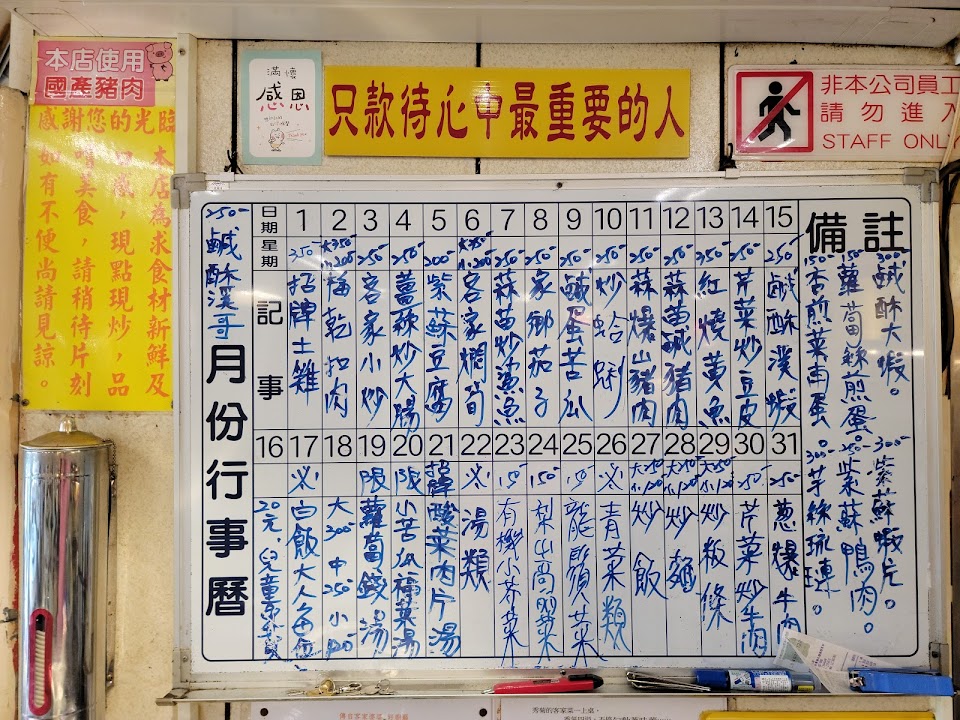 本店使用
國產豬肉
感謝您的光臨
本店為求食材新鮮及
口感，現點現炒，品
嚐美食，請稍待片刻
如有不便尚請見諒。
滿懷
感恩
只款待心中最重要的人
非本公司員工
請勿進入
STAFF ONLY
250- 鹹酥溪哥
月份行事曆
日期
星期
記事
1 350- 招牌土雞
2 大350- 小200- 福乾扣肉
3 250- 客家小炒
4 250- 薑絲炒大腸
5 200- 紫蘇豆腐
6 大350- 小200- 客家燜筍
7 250- 蒜苗炒鯊魚
8 250- 家鄉茄子
9 250- 鹹蛋苦瓜
10 250- 炒蛤蜊
11 250- 蒜爆山豬肉
12 250- 蒜苗鹹豬肉
13 250- 紅燒黃魚
14 250- 芹菜炒豆皮
15 250- 鹹酥溪蝦
16
17 必 白飯大人
20元，兒童
18 大300 中250 小120
19 限 蘿蔔錢湯
20 限 小苦瓜福菜湯
21 招牌 酸菜肉片湯
22 必 湯類
23 150- 有機小芥菜
24 150- 梨山高麗菜
25 150- 龍鬚菜
26 必 青菜類
27 大250 小120 炒飯
28 大250 小120 炒麵
29 大250 小120 炒粄條
30 250- 芹菜炒牛肉
31 250- 蔥爆牛肉
備註
300- 鹹酥大蝦。
300- 紫蘇蝦片。
150- 蘿蔔絲煎蛋。
250- 紫蘇鴨肉。
150- 杏煎菜南蛋。
300- 芋絲